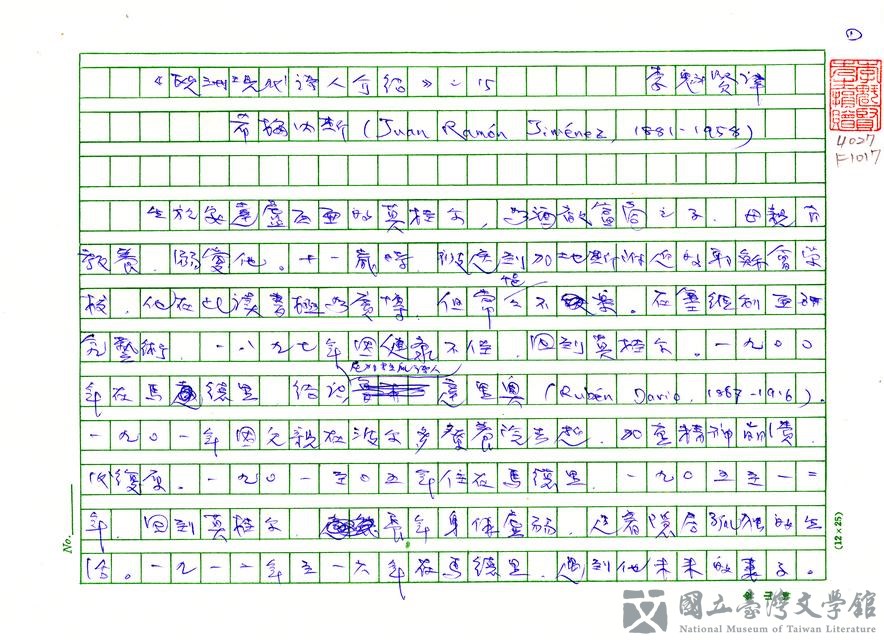 ①
《欧洲現代詩人介紹》之15 李魁賢譯
希梅内斯 (Juan Ramón Jiménez, 1881-1958)
李魁賢捐贈
4027
F1017
生於安達盧西亞的莫格尔,為酒商富商之子。母親有
教養,溺愛他。十一歲時,被送到加地斯附近的耶穌會學
校,他在此讀書極為廣博,但常悒悒不樂。在塞維利亚研
究藝術,一八九七年因健康不佳,回到莫格尔。一九〇〇
年在馬德里,結識尼加拉瓜詩人達里奥 (Rubén Dario, 1867-1916)。
一九〇一年因父親在波尔多療養院去世,加重精神崩潰,
恢復。一九〇一至〇五年住在馬德里,一九〇五至一二
年,回到莫格尔,長年身体虛弱,过着隱居孤独的生
活。一九一二年至一六年在馬德里,遇到他未来的妻子。
No.
(12×25)
國立臺灣文學館
National Museum of Taiwan Literature